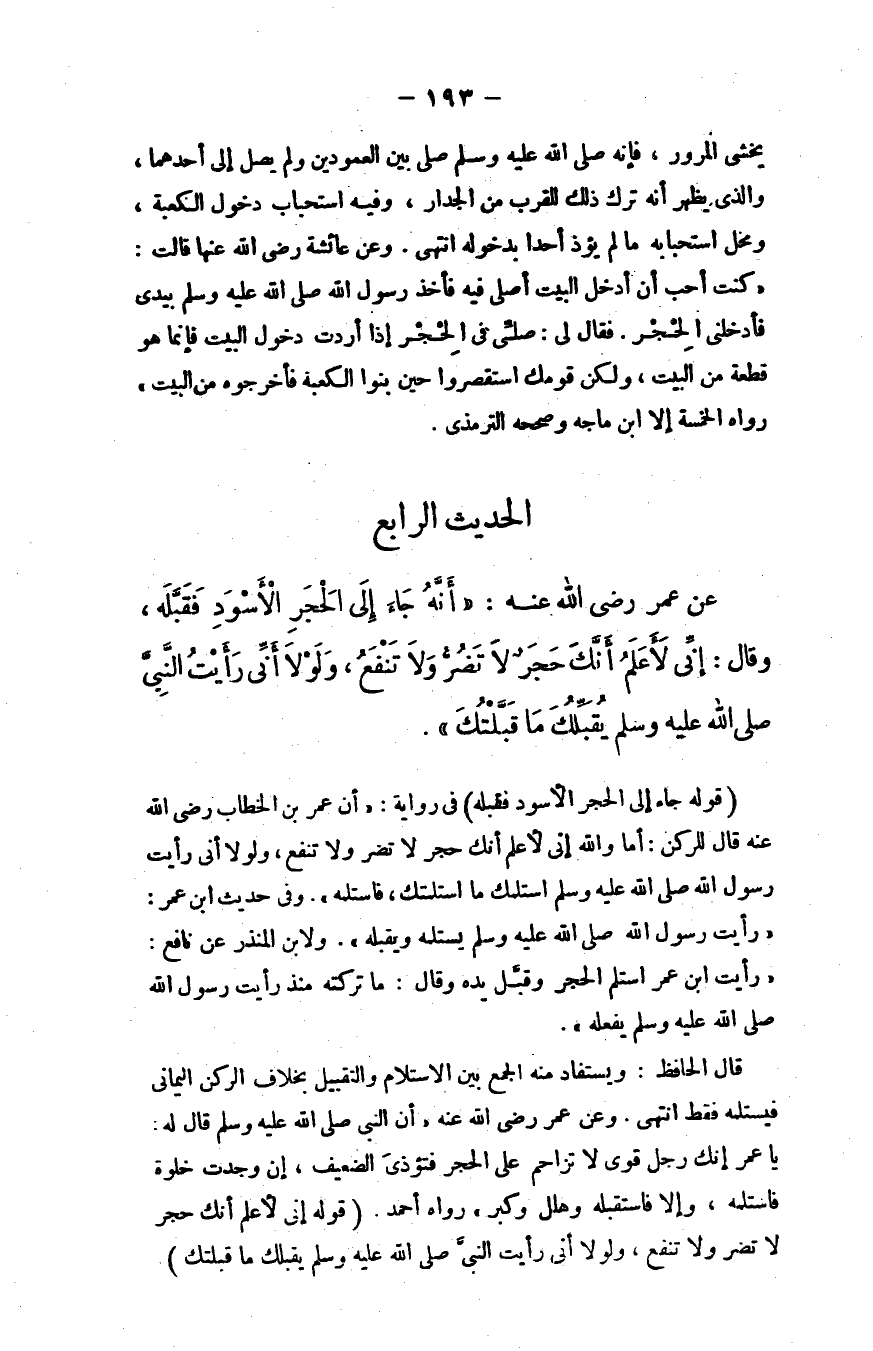 – ١٩٣ –
يخشى المرور ، فإنه صلى الله عليه وسلم صلى بين العمودين ولم يصل إلى أحدهما ،
والذى يظهر أنه ترك ذلك للقرب من الجدار ، وفيه استحباب دخول الكعبة ،
ومحل استحبابه ما لم يؤذ أحدا بدخوله انتهى . وعن عائشة رضى الله عنها قالت :
« كنت أحب أن أدخل البيت أصلى فيه فأخذ رسول الله صلى الله عليه وسلم بيدى
فأدخلنى الحِجْر . فقال لى : صلِّى فى الحِجْر إذا أردت دخول البيت فإنما هو
قطعة من البيت ، ولكن قومك استقصروا حين بنوا الكعبة فأخرجوه من البيت »
رواه الخمسة إلا ابن ماجه وصححه الترمذى .
الحديث الرابع
عن عمر رضى الله عنه : « أَنَّهُ جَاءَ إِلَى الْحَجَرِ الْأَسْوَدِ فَقَبَّلَه ،
وقال : إِنِّى لَأَعْلَمُ أَنَّكَ حَجَرٌ لاَ تَضُرُّ وَلاَ تَنْفَعُ ، وَلَوْلاَ أَنِّى رَأَيْتُ النَّبِىَّ
صلى الله عليه وسلم يُقَبِّلُكَ مَا قَبَّلْتُكَ » .
( قوله جاء إلى الحجر الأسود فقبله ) فى رواية : « أن عمر بن الخطاب رضى الله
عنه قال للركن : أما والله إنى لأعلم أنك حجر لا تضر ولا تنفع ، ولولا أنى رأيت
رسول الله صلى الله عليه وسلم استلمك ما استلمتك ، فاستلمه » . وفى حديث ابن عمر :
« رأيت رسول الله صلى الله عليه وسلم يستلمه ويقبله » . ولابن المنذر عن نافع :
« رأيت ابن عمر استلم الحجر وقبَّل يده وقال : ما تركته منذ رأيت رسول الله
صلى الله عليه وسلم يفعله » .
قال الحافظ : ويستفاد منه الجمع بين الاستلام والتقبيل بخلاف الركن اليمانى
فيستلمه فقط انتهى . وعن عمر رضى الله عنه « أن النبى صلى الله عليه وسلم قال له :
يا عمر إنك رجل قوى لا تزاحم على الحجر فتؤذىَ الضعيف ، إن وجدت خلوة
فاستلمه ، وإلا فاستقبله وهلل وكبر » رواه أحمد . ( قوله إنى لأعلم أنك حجر
لا تضر ولا تنفع ، ولولا أنى رأيت النبىَّ صلى الله عليه وسلم يقبلك ما قبلتك )